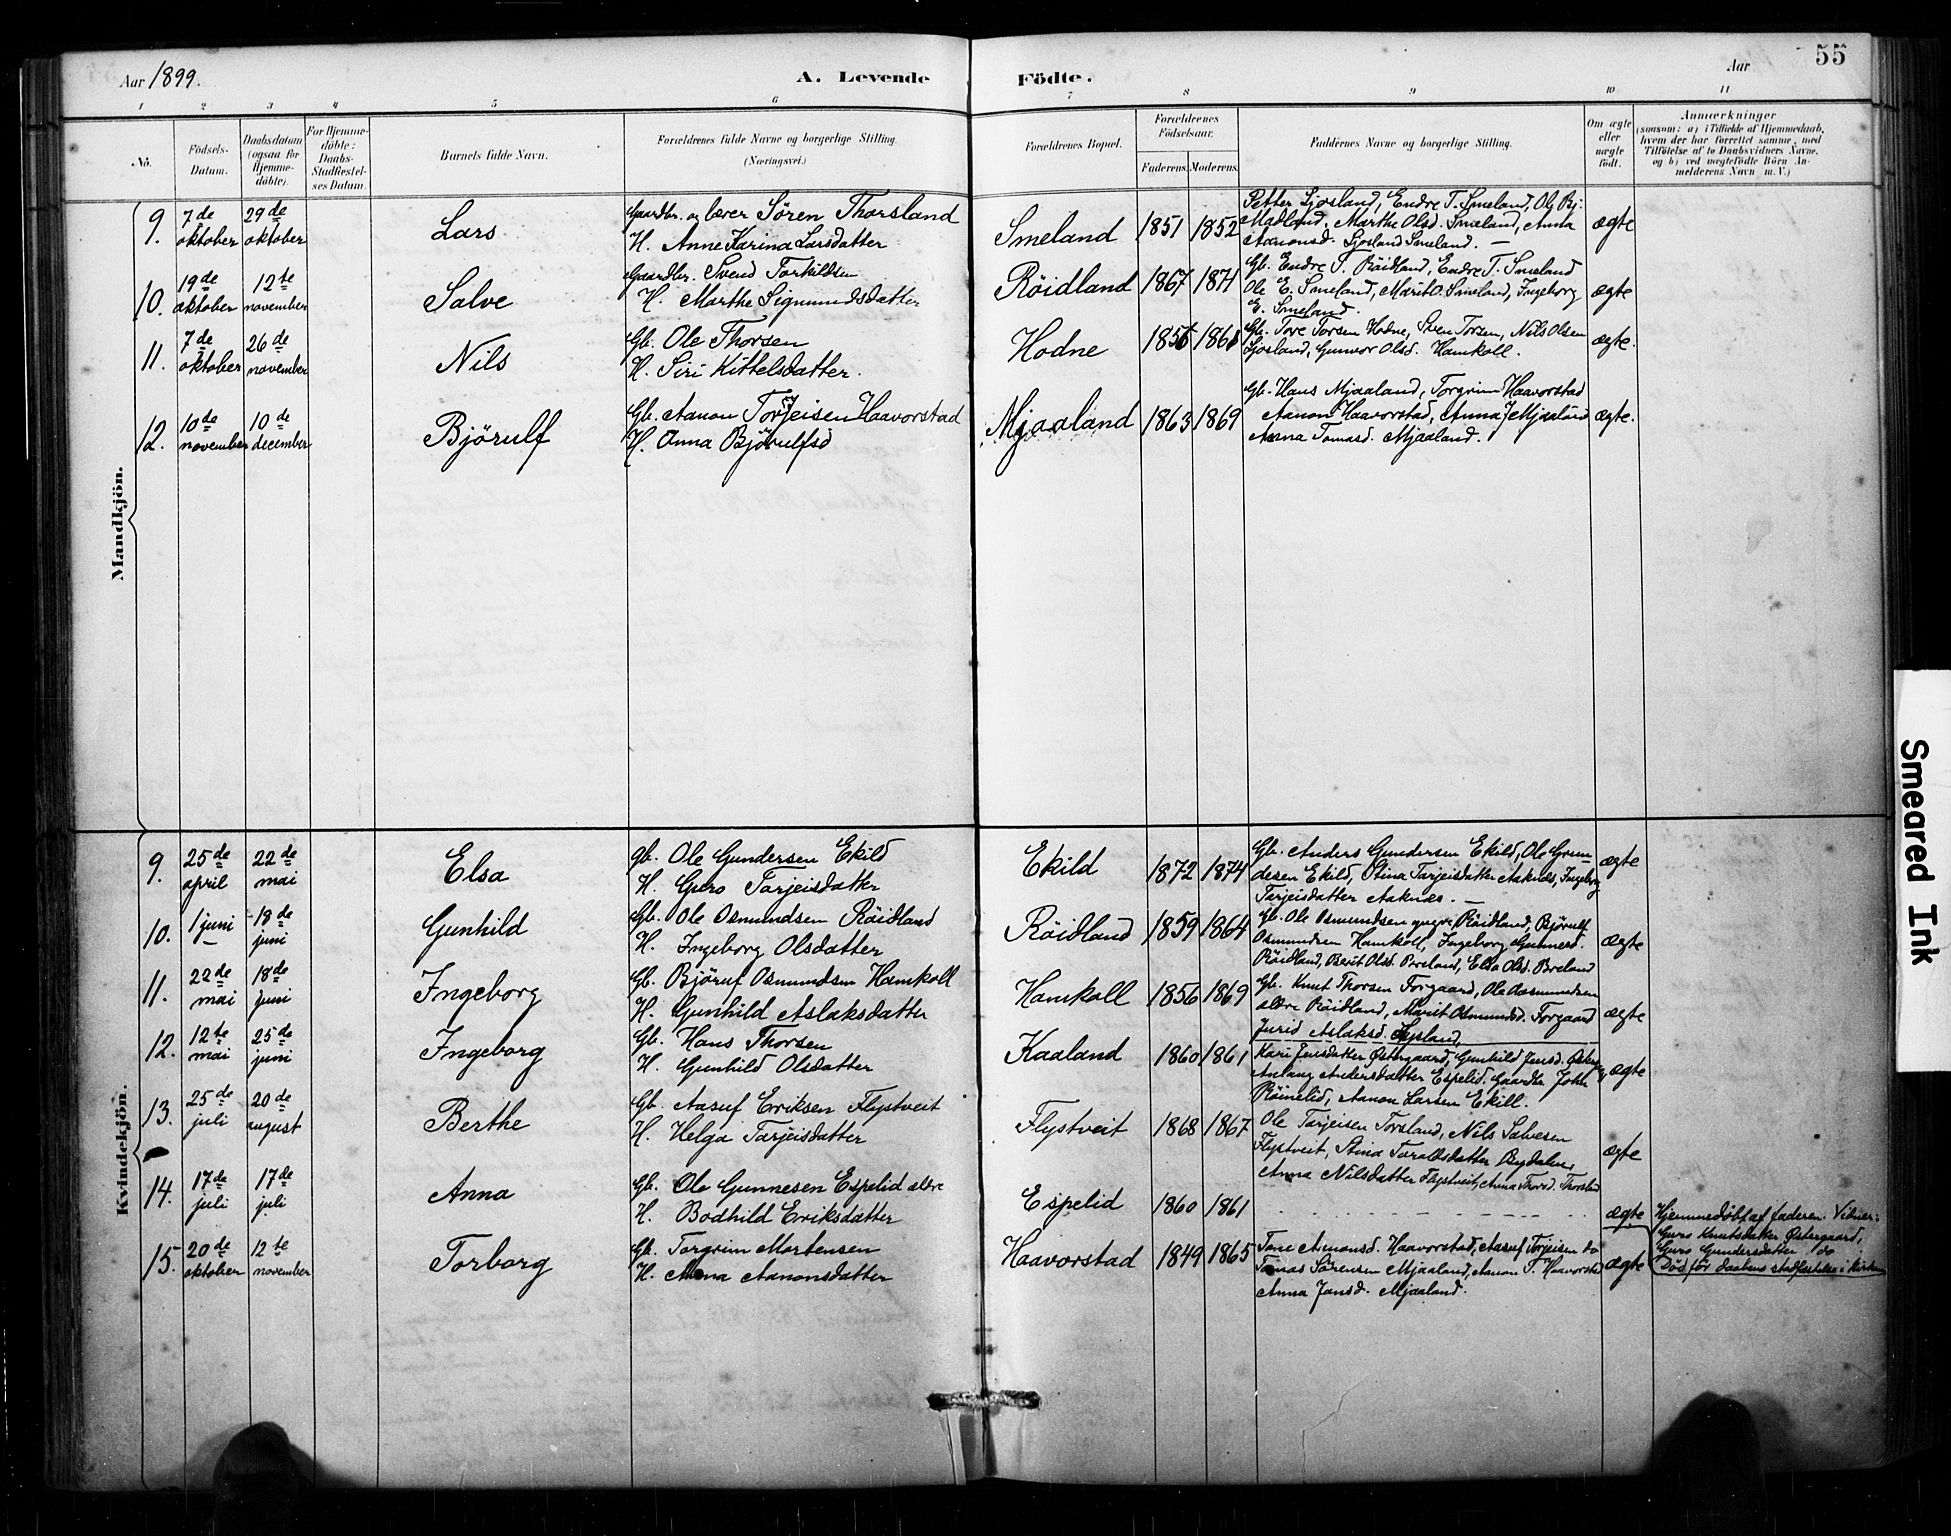 Aar 1899.
A. Levende Födte.
Aar
55
1 2 3 4 5 6 7 8 9 10 11
No.
Födsels-Datum.
Daabsdatum (ogsaa for Hjemme-döbte).
For Hjemme-döbte: Daabs-Stadfæstel-ses Datum.
Barnets fulde Navn.
Forældrenes fulde Navne og borgerlige Stilling. (Næringsvei.)
Forældrenes Bopæl.
Forældrenes Födselsaar.
Faderens. Moderens.
Faddernes Navne og borgerlige Stilling.
Om ægte eller uægte födt.
Anmærkninger
(saasom: a) i Tilfælde af Hjemmedaab,
hvem der har forrettet samme, med
Tilföielse af to Daabsvidners Navne,
og b) ved uægtefödte Börn An-
melderens Navn m. V.)
Mandkjön.
9. 7de oktober 29de oktober Lars
Gaardbr. og lærer Sören Thorsland
H. Anne Karina Larsdatter
Smeland 1851 1852
Petter Ljosland, Endre T. Smeland, Ol. Bj.
Madland, Marthe Olsd. Smeland, Anna
Aanonsd. Ljosland Smeland. —
ægte
10. 19de oktober 12te november Salve
Gaardbr. Svend Torkildsen
H. Marthe Sigmundsdatter
Röidland 1867 1871
Gb. Endre T. Röidland, Endre T. Smeland
Ole E. Smeland, Marit O. Smeland, Ingeborg
E. Smeland.
ægte
11. 7de oktober 26de november Nils
Gb. Ole Thorsen
H. Siri Kittelsdatter.
Hodne 1856 1861
Gb. Tore Torsen Hodne, Sven Torsen, Nils Olsen
Ljosland, Gunvor Olsd. Hamkoll.
ægte.
12. 10de november 10de december Björulf
Gb. Aanon Torjeisen Haavorstad
H. Anna Björulfsd
Mjaaland 1863 1869
Gb. Hans Mjaaland, Torgrim Haavorstad
Aanon Haavorstad, Anna J. Mjaaland
Anna Tomasd. Mjaaland.
ægte.
Kvindekjön.
9. 25de april 22de mai Elsa
gb. Ole Gundersen Ekild
H. Guro Tarjeisdatter
Ekild 1872 1874
Gb. Anders Gundersen Ekild, Ole Grun-
desen Ekild, Stina Tarjeisdatter Aaknes, Ingeborg
Tarjeisdatter Aaknes. —
ægte
10. 1 juni 18de juni Gunhild
Gb. Ole Osmundsen Röidland
H. Ingeborg Olsdatter
Röidland 1859 1864
Gb. Ole Osmundsen yngre Röidland, Björulf
Osmundsen Hamkoll, Ingeborg Gunnersd.
Röidland, Berit Olsd. Breland, Elsa Olsd. Breland
ægte
11. 22de mai 18de juni Ingeborg
Gb. Björuf Osmundsen Hamkoll
H. Gunhild Aslaksdatter
Hamkoll 1856 1869
Gb. Knut Thorsen Forgaard, Ole Aasmundsen
ældre Röidland, Marit Osmundsd. Forgaard
Jurid Aslaksd. Lysland,
ægte
12. 12te mai 25de juni Ingeborg
Gb. Hans Thorsen
H. Gunhild Olsdatter
Kaaland 1860 1861
Kari Jensdatter Östergaard, Gunhild Jensd.
Anlaug Andersdatter Espelid, Gaardbr. John
Röinelid, Aanon Larsen Ekill.
ægte
13. 25de juli 20de august Berthe
Gb. Aasuf Eriksen Flystveit
H. Helga Tarjeisdatter
Flystveit 1868 1867
Ole Tarjeisen Torsland, Nils Salvesen
Flystveit, Stina Taraldsdatter Bydalen,
Anna Nilsdatter Flystveit, Anna Thorsd. Thorsland
ægte
14. 17de juli 17de juli Anna
Gb. Ole Gunnesen Espelid ældre
H. Bodhild Eriksdatter
Espelid 1860 1861
ægte
Hjemmedöbt af faderen. Vidner:
Guro Knutsdatter Östergaard,
Guro Gundersdatter do
Död för daabens stadfæstelse i kirken
15. 20de oktober 12te november Torborg
Gb. Torgrim Mortensen
H. Anna Aanonsdatter
Haavorstad 1849 1865
Tone Aanonsd. Haavorstad, Aasuf Torjeisen do
Tomas Sörensen Mjaaland, Aanon T. Haavorstad
Anna Jansd. Mjaaland.
ægte
Smeared Ink